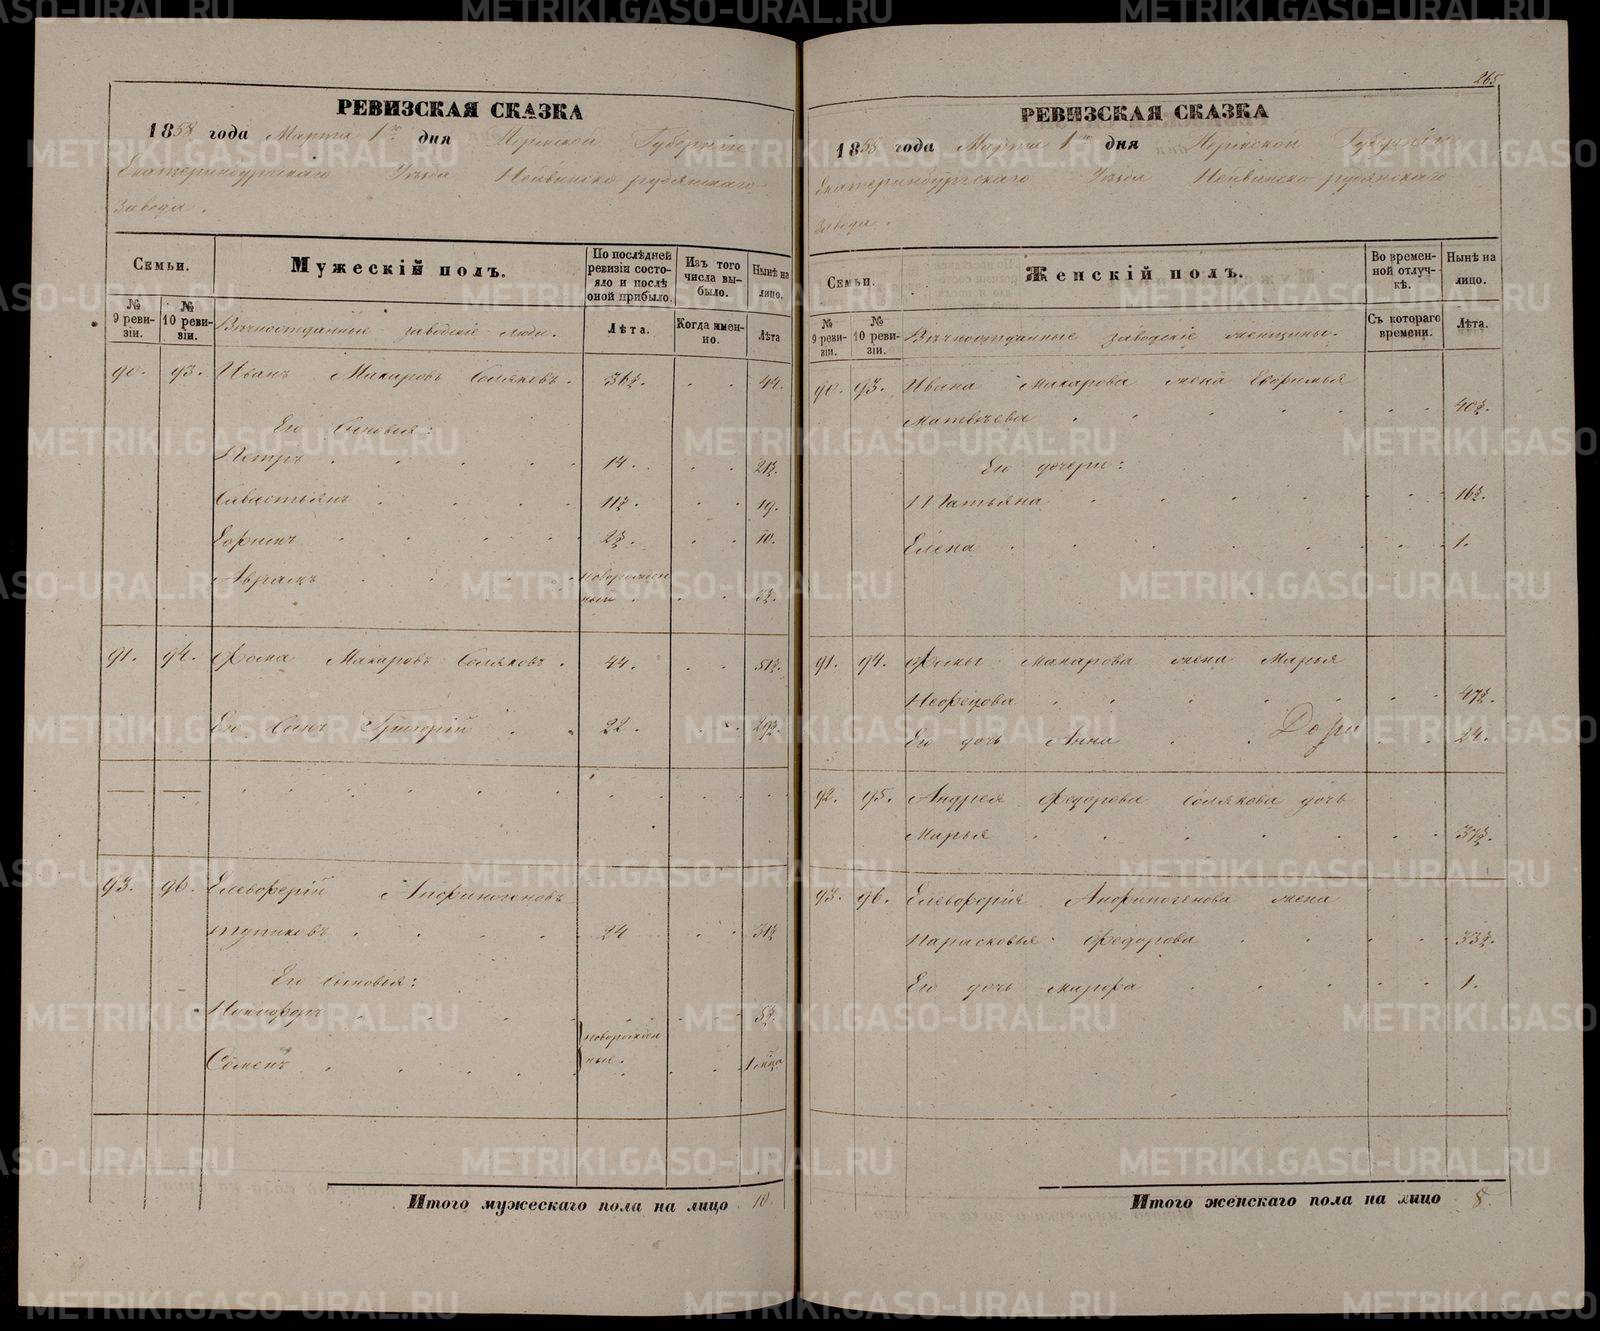 РЕВИЗСКАЯ СКАЗКА
1858 года Марта 1го дня Пермской Губернiи
Екатеринбургскаго Уѣзда Нейвинско рудянскаго
Завода.
Семьи.
№ 9 ревизiи.
№ 10 ревизiи.
Мужескiй полъ.
Вѣчноотданные заводскiе люди.
По послѣдней ревизiи состояло и послѣ оной прибыло.
Лѣта.
Изъ того числа выбыло.
Когда именно.
Нынѣ на лицо.
Лѣта
90. 93. Иванъ Макаровъ Соляковъ. 36½. 44.
Его Сыновья:
Петръ 14. 21½.
Савастьянъ 11½. 19.
Ефимъ 2½. 10.
Аврамъ новорожден
ный
91. 94. Фома Макаровъ Соляковъ. 44. 51½.
Его Сынъ Григорiй 22. 29½.
93. 96. Елевферiй Анфиногеновъ
Тупиковъ 24 31½
Его Сыновья:
Никифоръ 5½.
Семенъ новорожден
ные. 1 мѣца
Итого мужескаго пола на лицо 10.
265
РЕВИЗСКАЯ СКАЗКА
1858 года Марта 1го дня Пермской Губернiи
Екатеринбургскаго Уѣзда Нейвинско рудянскаго
Завода.
Семьи.
№ 9 ревизiи.
№ 10 ревизiи.
Женскiй полъ.
Вѣчноотданные заводскiе женщины.
Во временной отлучкѣ.
Съ котораго времени.
Нынѣ на лицо.
Лѣта.
90. 93. Ивана Макарова жена Евфимья
Матвѣева 40½.
Его дочери:
Татьяна 16½.
Елена 1.
91. 94. Фомы Макарова жена Марья
Нефедова 47½.
Его дочь Анна 24.
92. 95. Андрея Федорова Солякова дочь
Марья 37½.
93. 96. Елевферiя Анфиногенова жена
Парасковья Федорова 33½.
Его дочь Марфа 1.
Итого женскаго пола на лицо 8.
METRIKI.GASO-URAL.RU